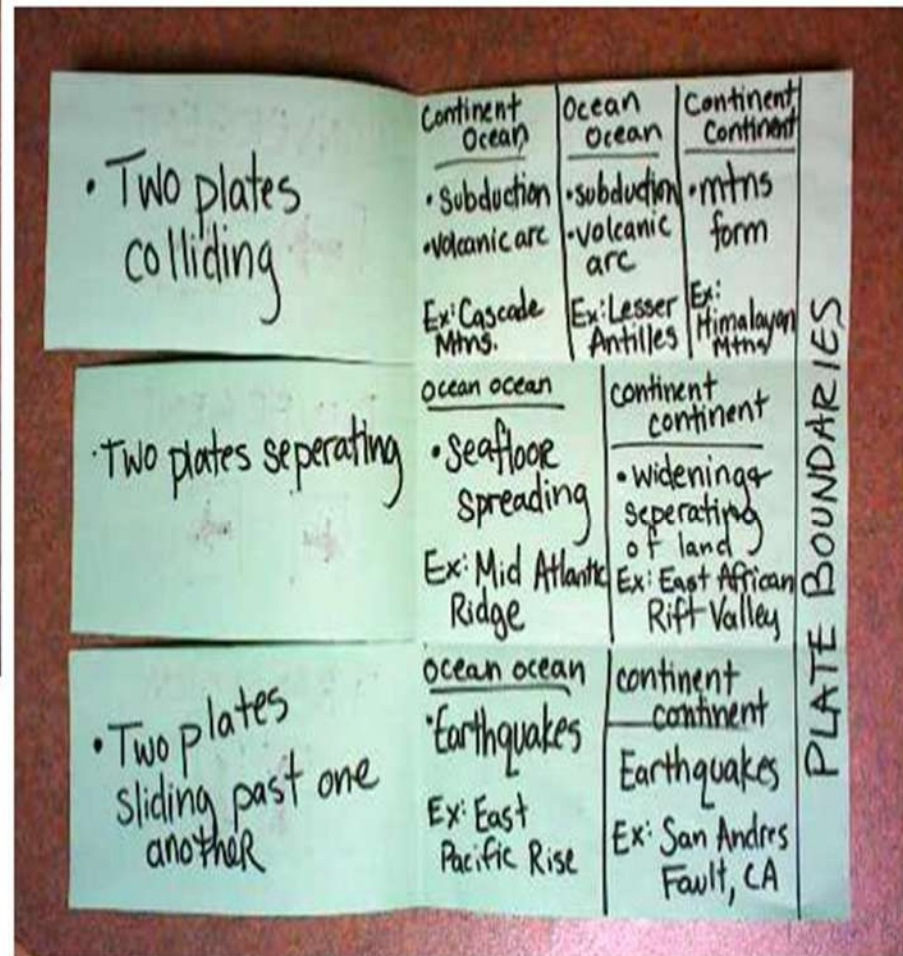 • Two plates
colliding
Continent
Ocean
• Subduction
• Volcanic arc
Ex: Cascade
Mtns.
Ocean
Ocean
• subduction
• volcanic
arc
Ex: Lesser
Antilles
Continent
Continent
• mtns
form
Ex:
Himalayan
Mtns
• Two plates seperating
ocean ocean
• Seafloor
Spreading
Ex: Mid Atlantic
Ridge
continent
continent
• Widening &
seperating
of land
Ex: East African
Rift Valley
• Two plates
sliding past one
another
ocean ocean
• Earthquakes
Ex: East
Pacific Rise
continent
continent
Earthquakes
Ex: San Andres
Fault, CA
PLATE BOUNDARIES